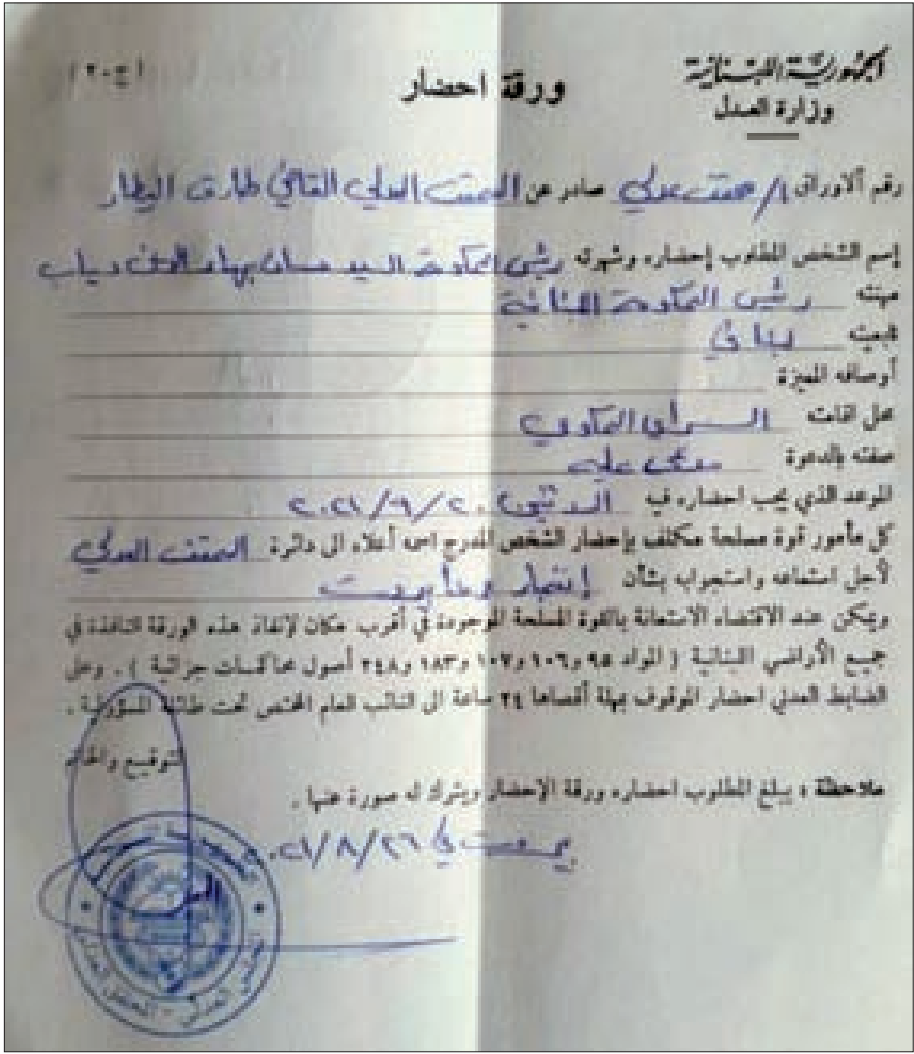 الجمهورية اللبنانية
وزارة العدل
ورقة احضار
(ج-٢٠)
رقم الاوراق ١/محقق عدلي صادر عن المحقق العدلي القاضي طارق البيطار
إسم الشخص المطلوب إحضاره وشهرته رئيس الحكومة السيد حسان بهاء الدين دياب
مهنته رئيس الحكومة اللبنانية
تابعيته لبناني
أوصافه المميزة
محل اقامته السراي الحكومي
صفته بالدعوة مدعى عليه
الموعد الذي يجب احضاره فيه الاثنين ٢٠٢١/٩/٢٠
كل مأمور قوة مسلحة مكلف بإحضار الشخص المدرج اسمه أعلاه الى دائرة المحقق العدلي
لأجل استماعه واستجوابه بشأن إنفجار مرفأ بيروت
ويمكن عند الاقتضاء الاستعانة بالقوة المسلحة الموجودة في أقرب مكان لإنفاذ هذه الورقة النافذة في
جميع الأراضي اللبنانية ( المواد ٩٥ و١٠٦ و١٠٧ و١٨٣ و٢٤٨ أصول محاكمات جزائية ) . وعلى
الضابط العدلي احضار الموقوف بمهلة أقصاها ٢٤ ساعة الى النائب العام المختص تحت طائلة المسؤولية .
التوقيع والخاتم
ملاحظة : يبلغ المطلوب احضاره ورقة الإحضار ويترك له صورة عنها .
بيروت في ٢٠٢١/٨/٢٦
المجلس العدلي - المحقق العدلي